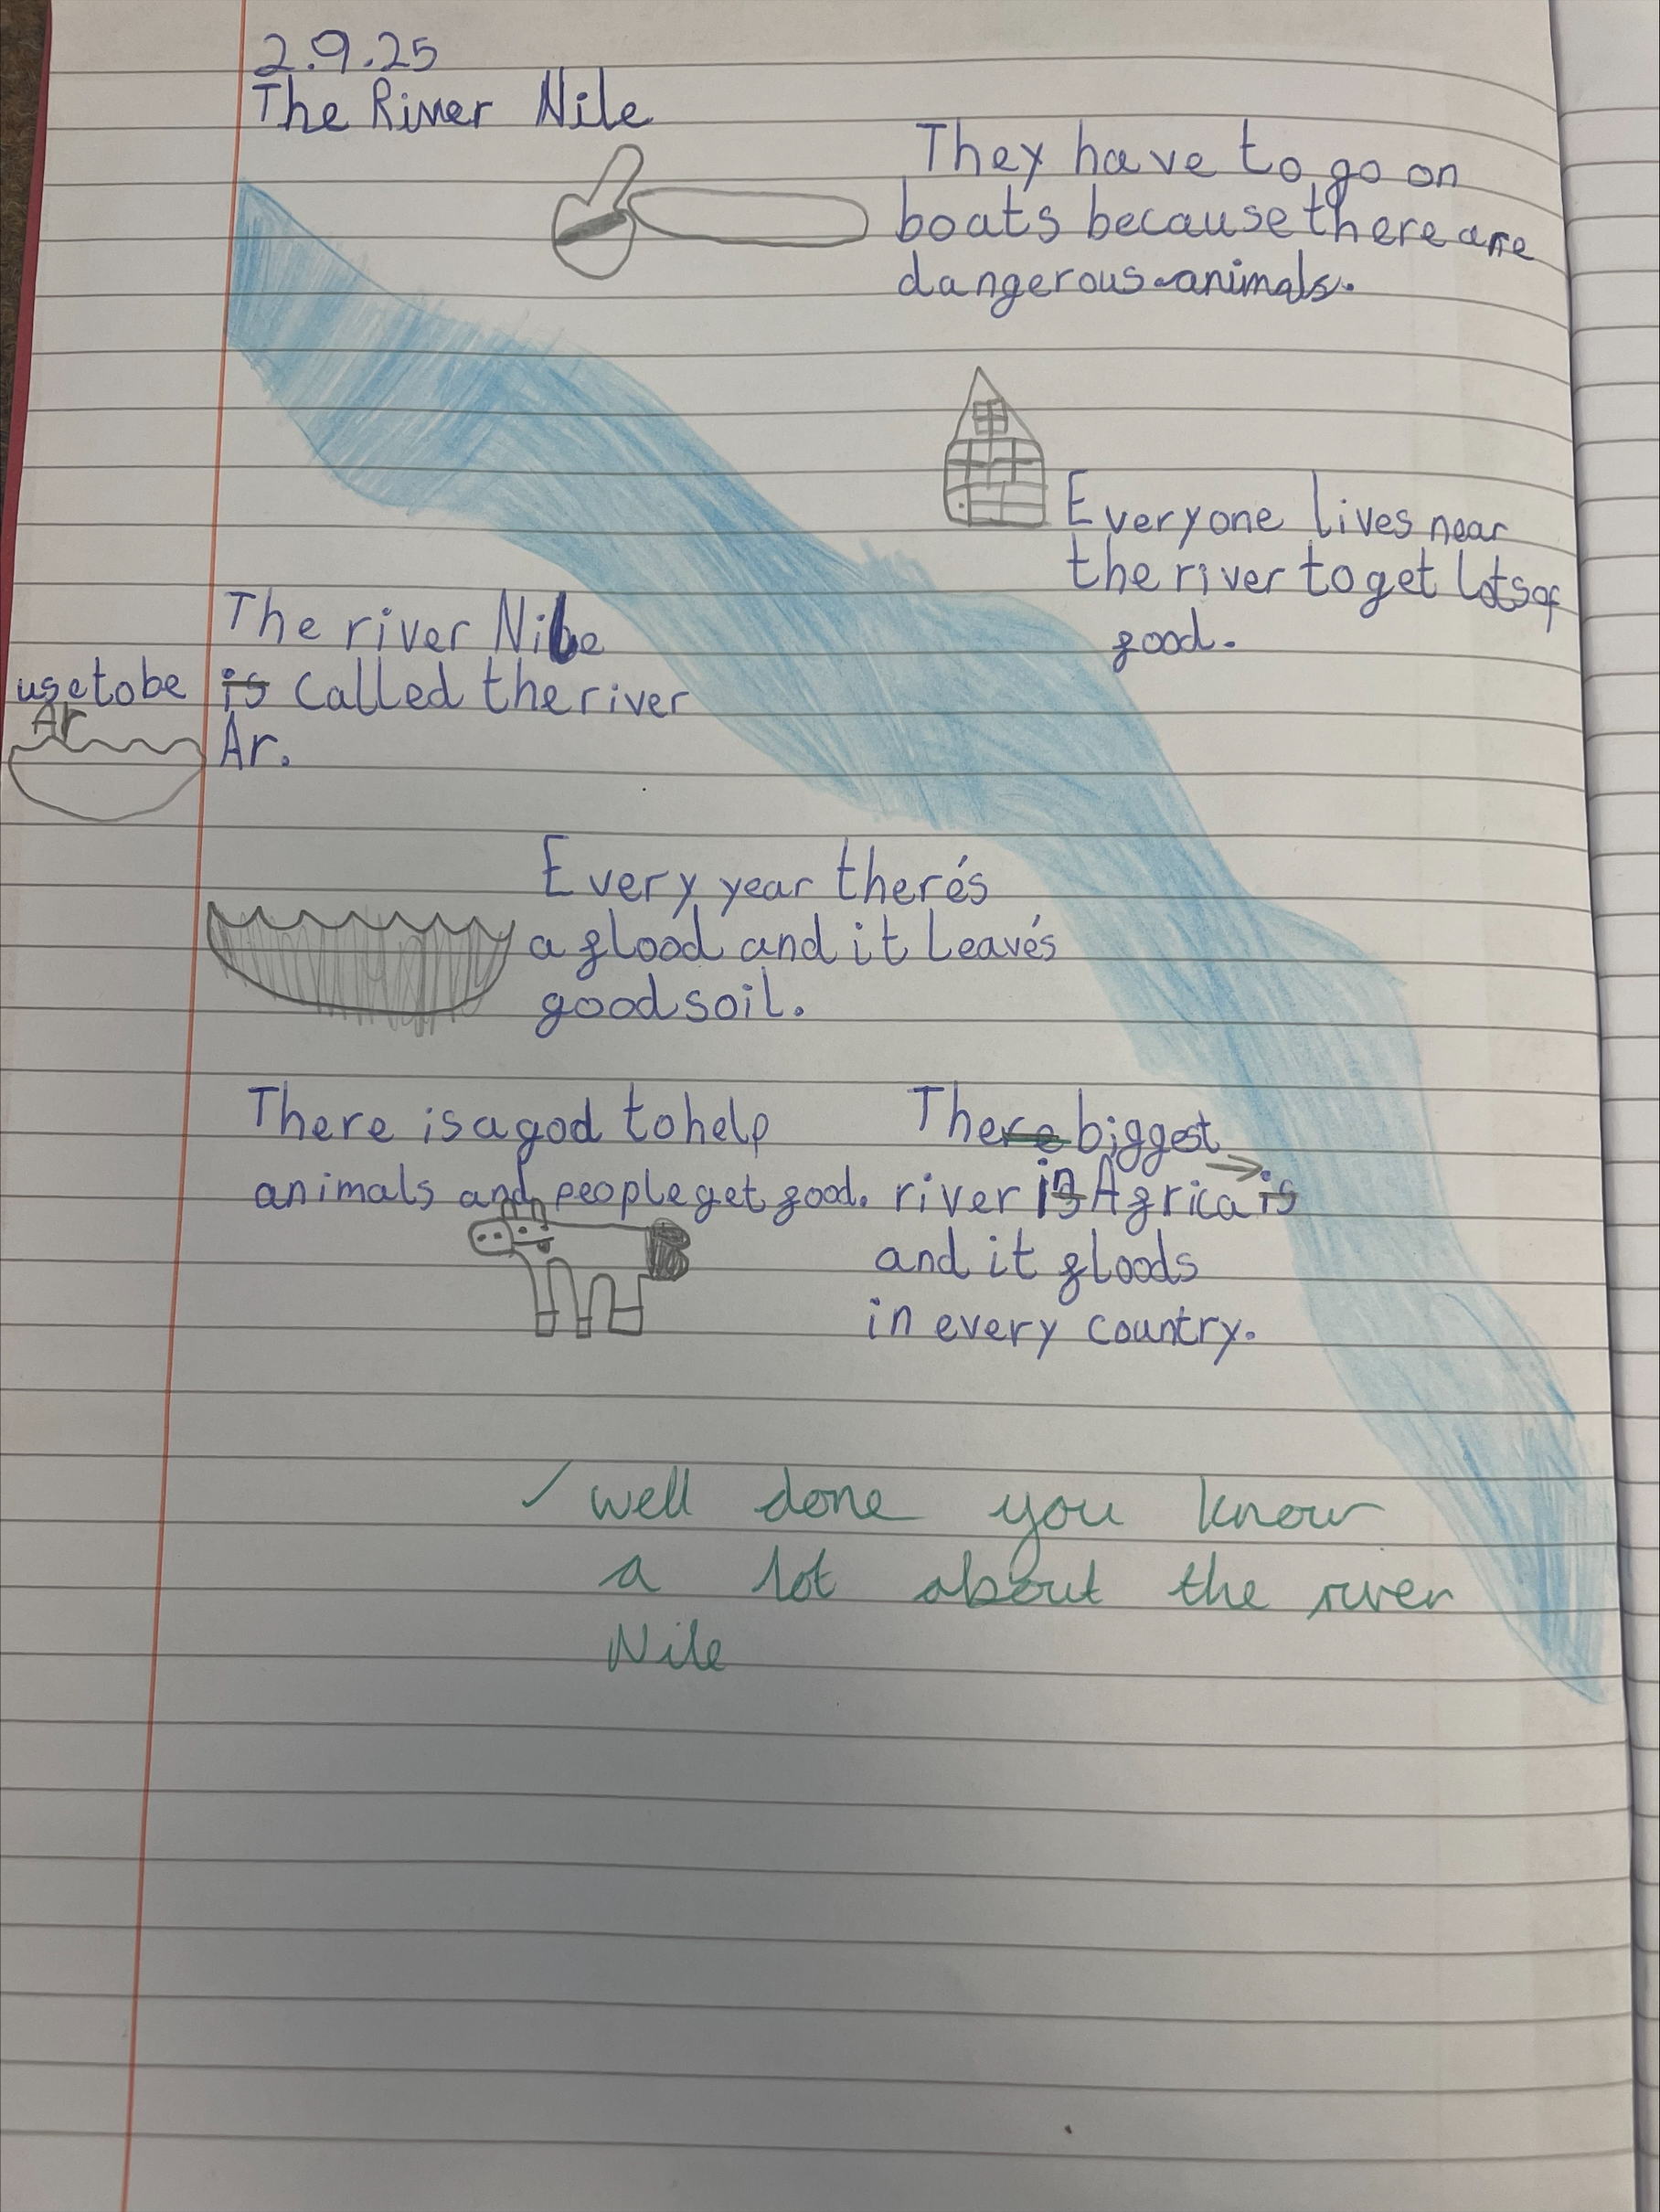 2.9.25
The River Nile
They have to go on
boats because there are
dangerous animals.
Everyone lives near
the river to get lots of
food.
The river Nile
use to be is called the river
Ar
Ar.
Every year there's
a flood and it leave's
good soil.
There is a god to help
animals and people get food.
There biggest
river in Africa is
and it floods
in every country.
✓ well done you know
a lot about the river
Nile